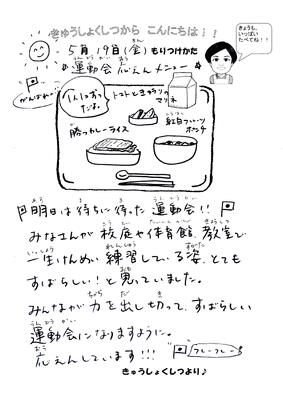 きゅうしょくしつから こんにちは!!
5月19日(金) もりつけかた
運動会 応えんメニュー
きょうも、
いっぱい
たべてね!!
がんばれー
トマトときゅうりの
マリネ
勝つカレーライス
紅白フルーツ
ポンチ
明日は待ちに待った 運動会!!
みなさんが 校庭や体育館、教室で
一生けんめい 練習している姿、とても
すばらしい!と思っていました。
みんなが力を出し切って、すばらしい
運動会になりますように。
応えんしています!!!
フレーフレー
きゅうしょくしつより♪